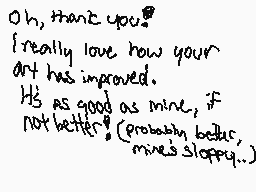 Oh, thank you!
I really love how your
art has improved.
It's as good as mine, if
not better! (probably better,
mine's sloppy..)